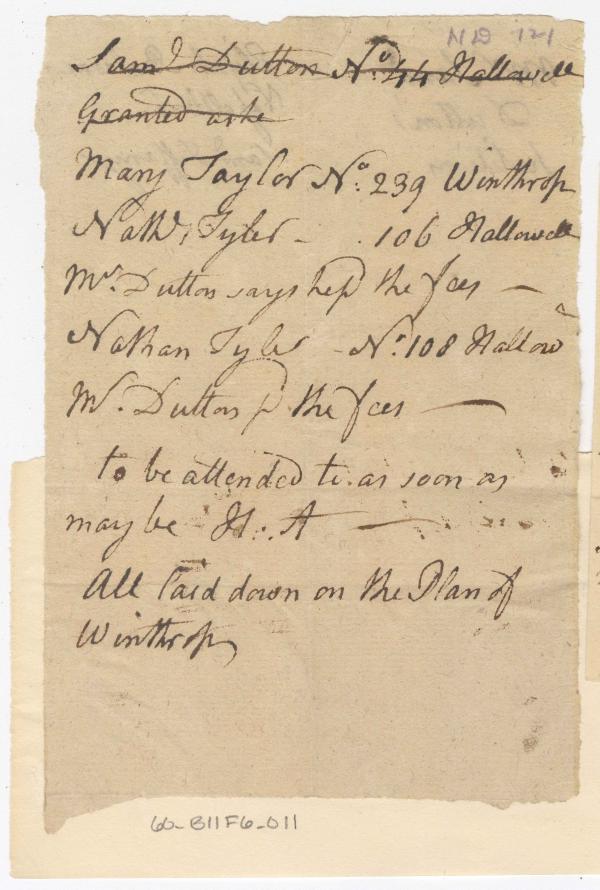 ND 121
Sam.l Dutton No. 44 Hallowell
Granted
Mary Taylor No. 239 Winthrop
Nath.l Tyler - . 106 Hallowell
Mr. Dutton says he pd the fees —
Nathan Tyler - No. 108 Hallow
Mr. Dutton pd the fees —
to be attended to as soon as
may be H. A —
All laid down on the Plan of
Winthrop
60-B11F6-011